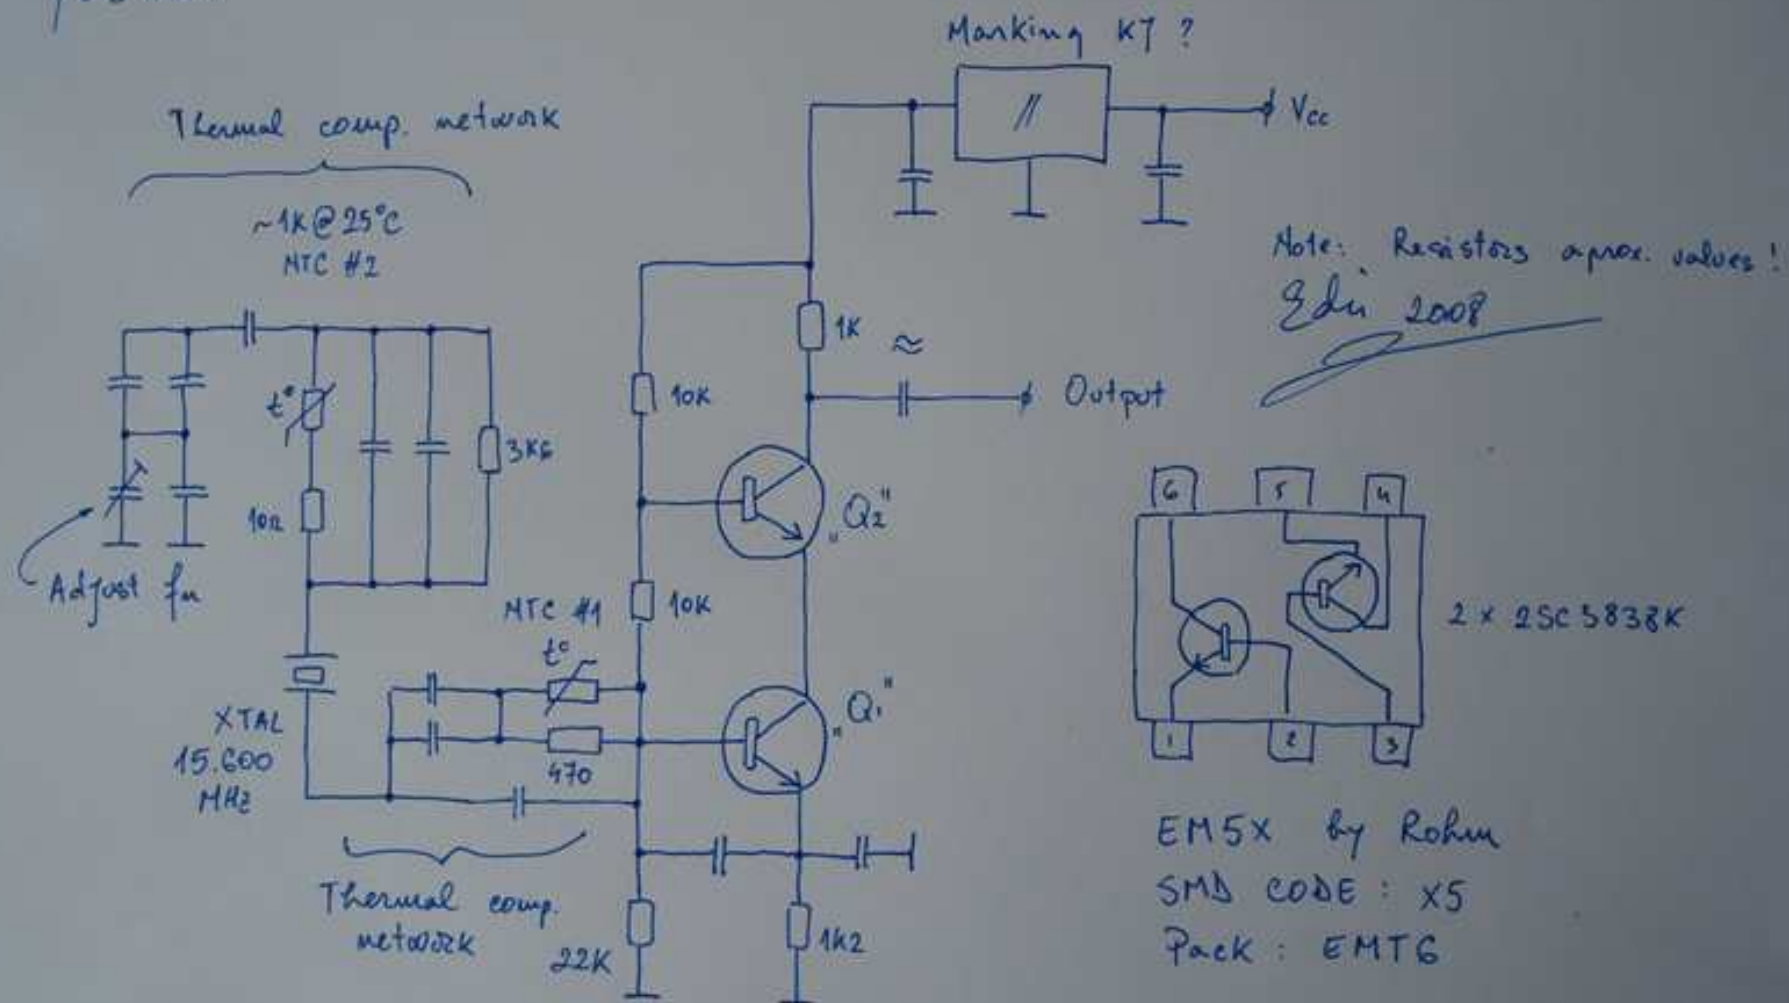 Marking K7 ?
Thermal comp. network
Vcc
~1K@25°C
NTC #2
Note: Resistors aprox. values!
Edu 2008
1K
≈
10K
Output
t°
3K6
10Ω
"Q2"
6
5
4
Adjust fn
NTC #1
10K
t°
2 x 2SC3838K
"Q1"
XTAL
15.600
MHz
470
1
2
3
Thermal comp.
network
22K
1K2
EM5X by Rohm
SMD CODE : X5
Pack : EMT6